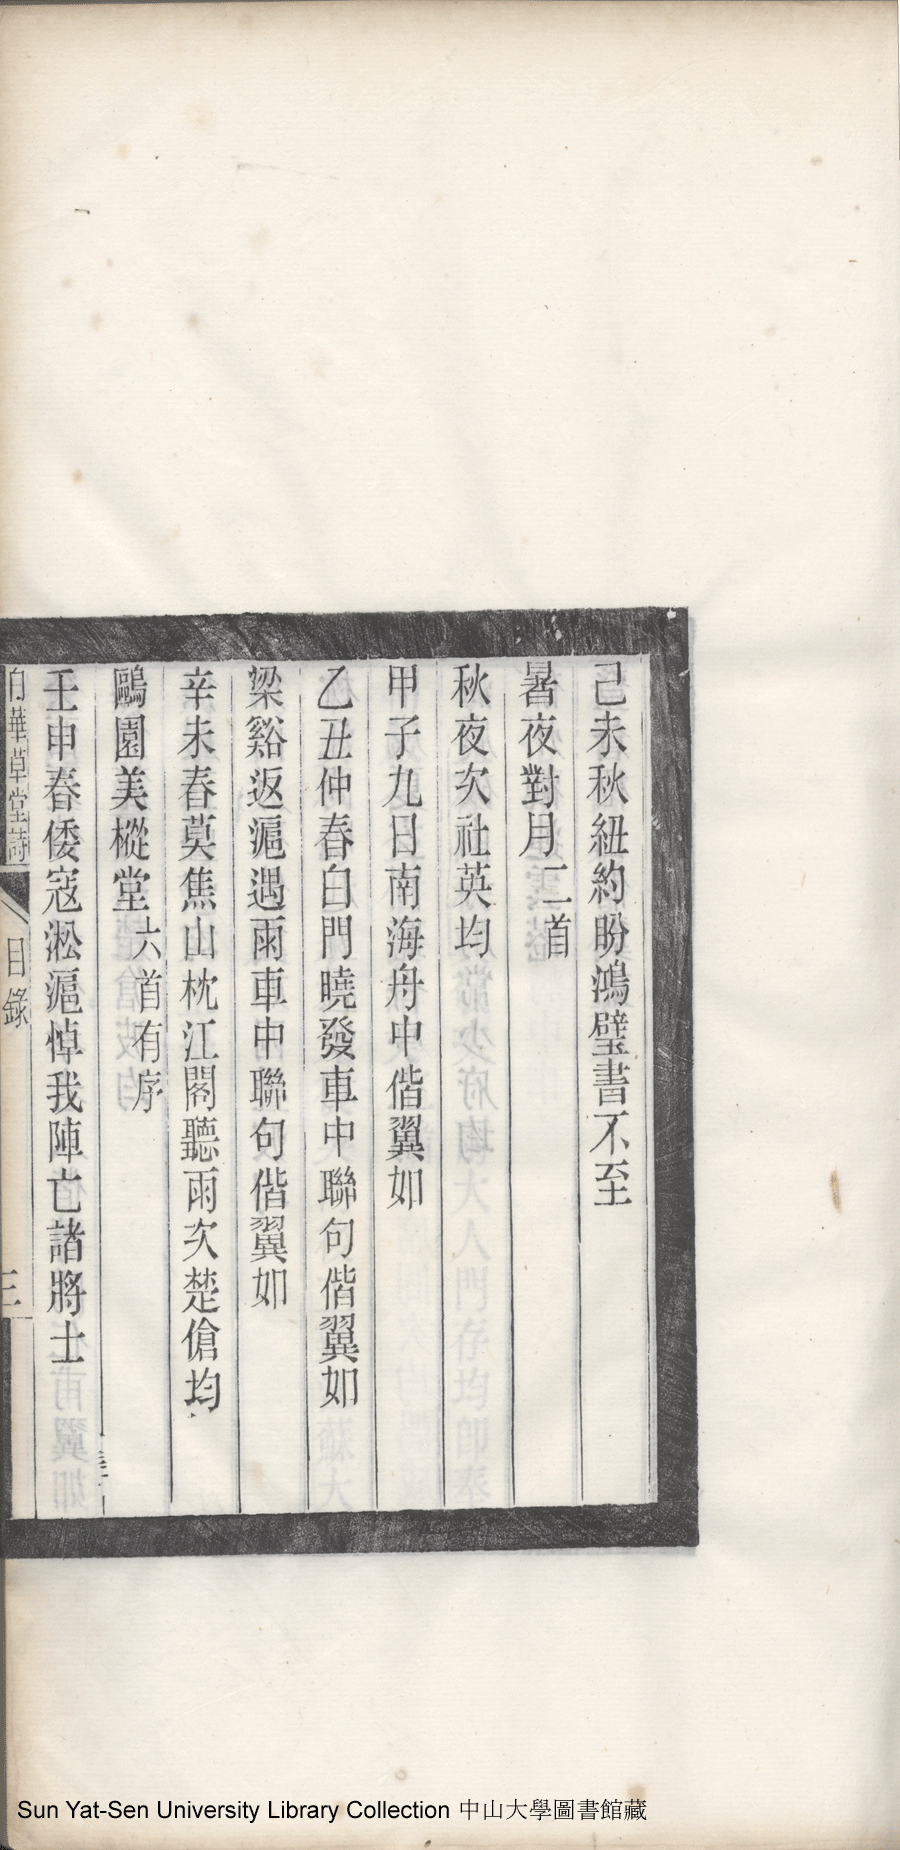 己未秋紐約盼鴻璧書不至
暑夜對月二首
秋夜次社英均
甲子九日南海舟中偕翼如
乙丑仲春白門曉發車中聯句偕翼如
梁谿返滬遇雨車中聯句偕翼如
辛未春莫焦山枕江閣聽雨次楚傖均
鷗園美樅堂六首有序
壬申春倭寇淞滬悼我陣亡諸將士
白華草堂詩
目錄
三
Sun Yat-Sen University Library Collection 中山大學圖書館藏